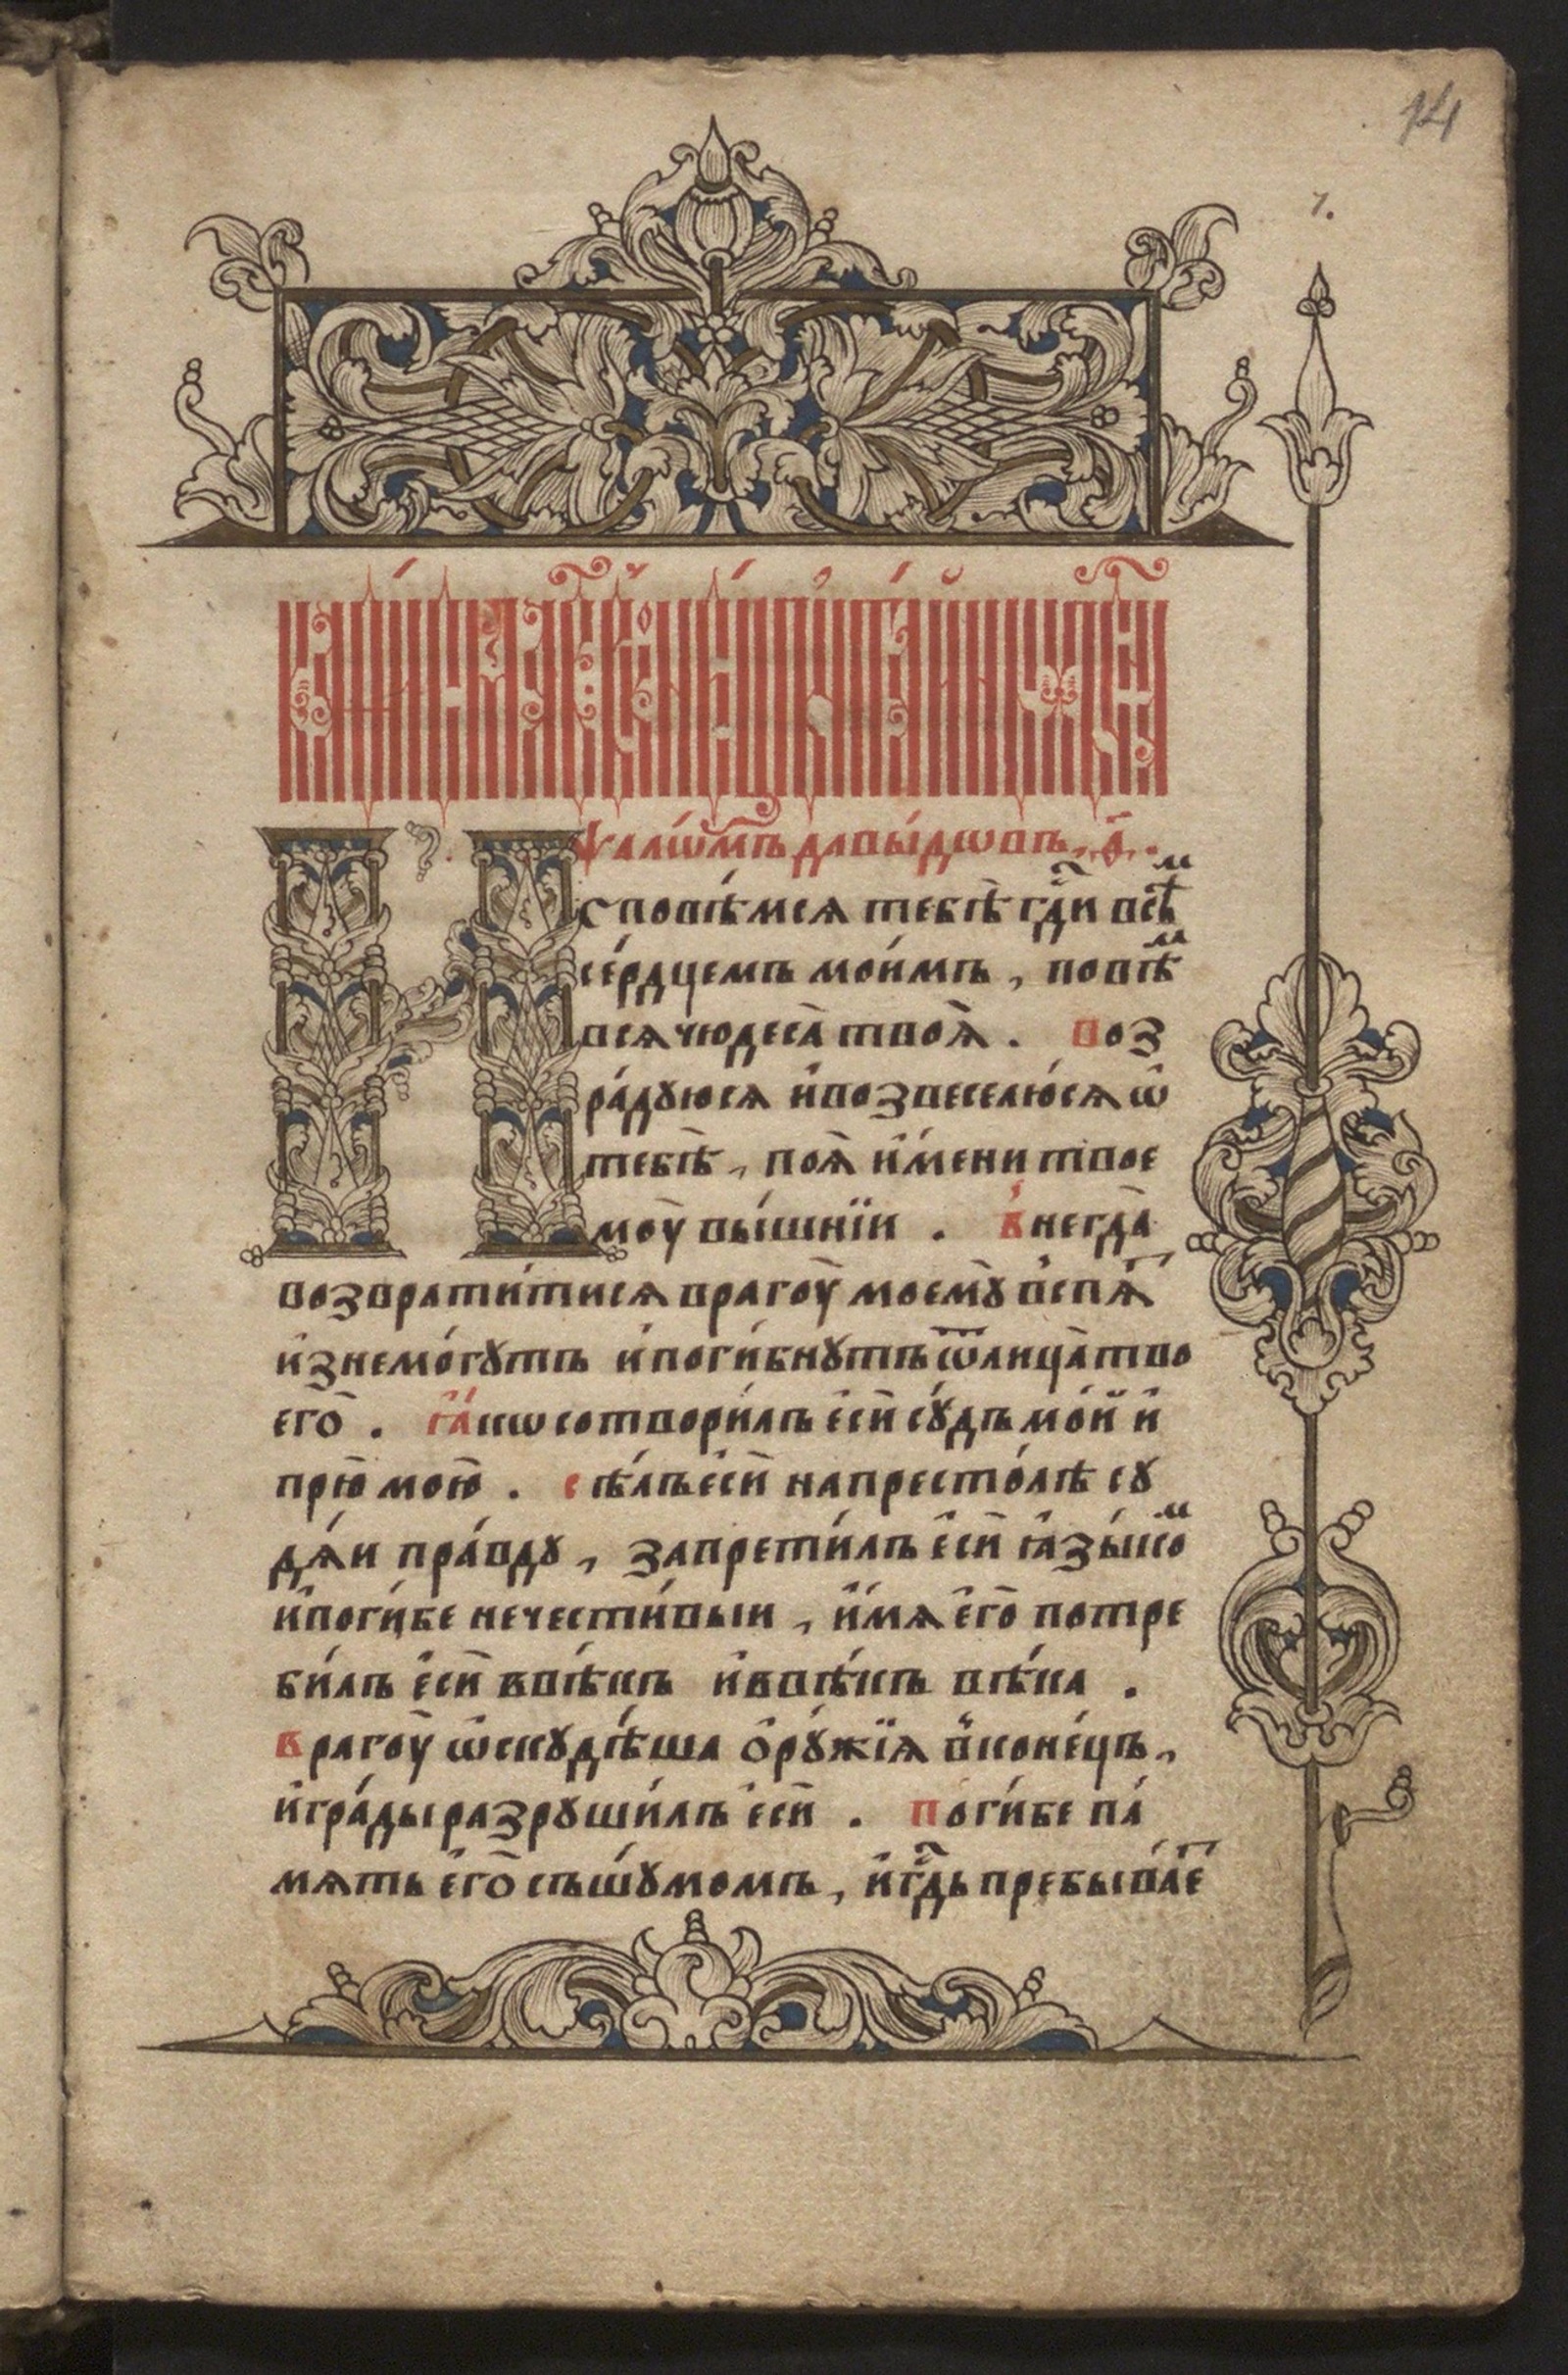 14
7.
Ѱалѡ́мъ давы́дѡвъ, ѳ҃.
Исповѣ́мся тебѣ̀ гд҃и всѣ́ᷨ
се́рдцемъ мои́мъ, повѣᷨ
вся чюдеса̀ твоѧ̀. воз
ра́дꙋюся и҆возвеселю́ся ѡ҆
тебѣ̀, поя̀ и҆́мени твое
моу̀ вы́шнїи. внегда̀
возврати́тися врагоу̀ моемꙋ̀ вспя́ᷮ
и҆знемо́гꙋтъ и҆поги́бнꙋтъ ѿлица̀ тво
его̀. ꙗ҆́кѡ сотвори́лъ є҆сѝ сꙋ́дъ мо́й и҆
прю̀ мою̀. сѣ́лъ є҆сѝ напресто́лѣ сꙋ
дя́и пра́вдꙋ, запрети́лъ є҆сѝ ꙗ҆зы́коᷨ
и҆поги́бе нечести́выи, и҆́мя є҆го̀ потре
би́лъ є҆сѝ ввѣ́къ и҆ввѣ́къ вѣ́ка.
врагоу̀ ѡ҆скꙋдѣ́ша ѻ҆рꙋ́жїя вконе́цъ,
и҆гра́ды разрꙋши́лъ є҆сѝ. поги́бе па́
мять є҆го̀ съшꙋ́момъ, и҆гд҃ь пребыва́еᷮ